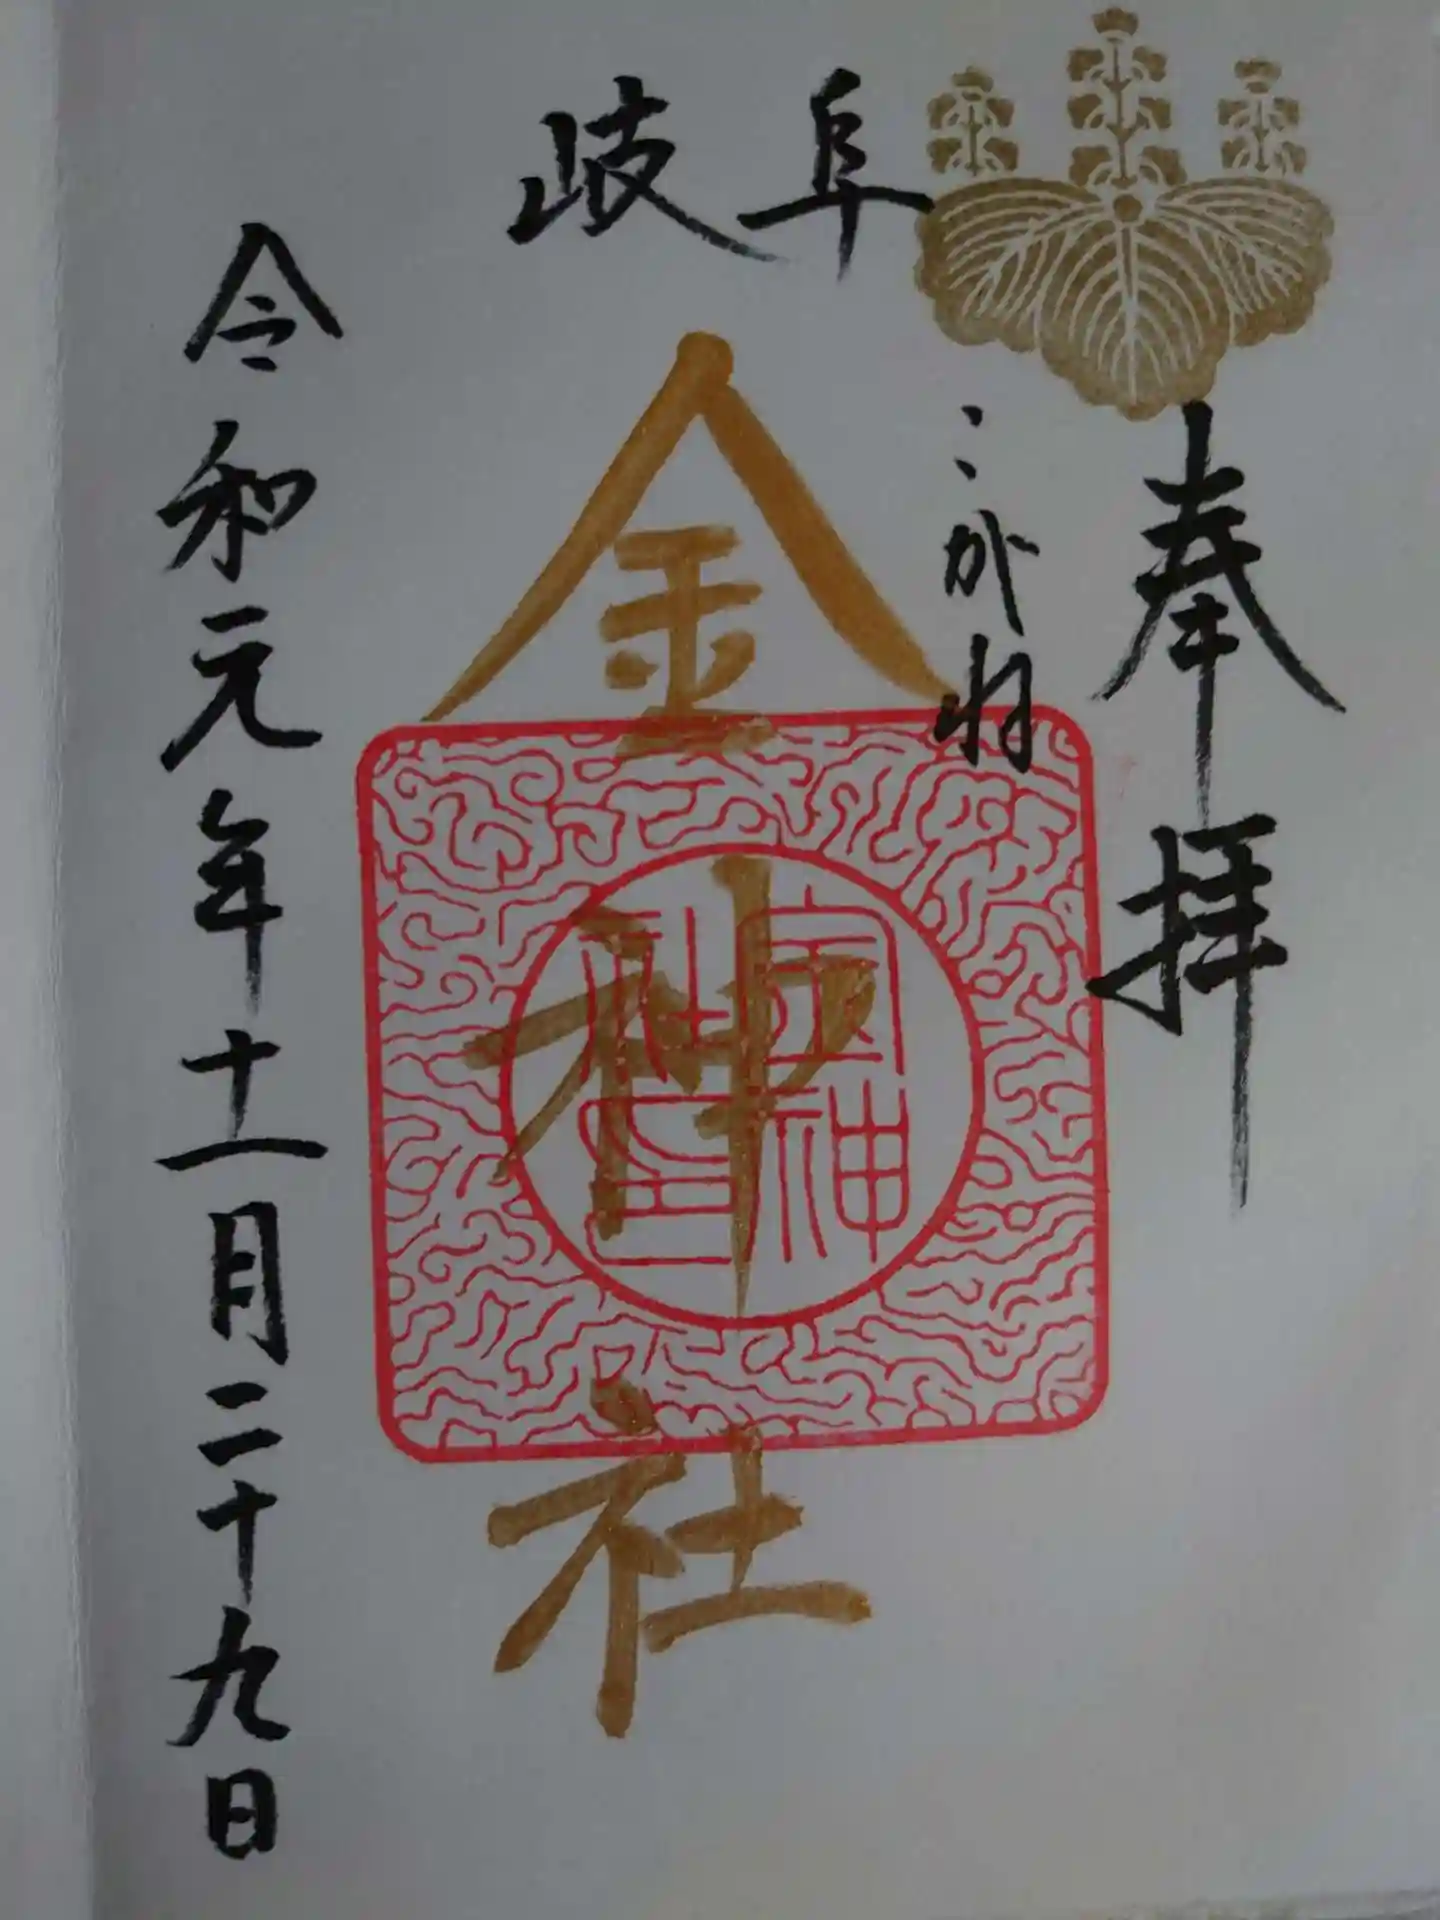 岐阜
奉拝
こがね
金神社
金神社印
令和元年十一月二十九日